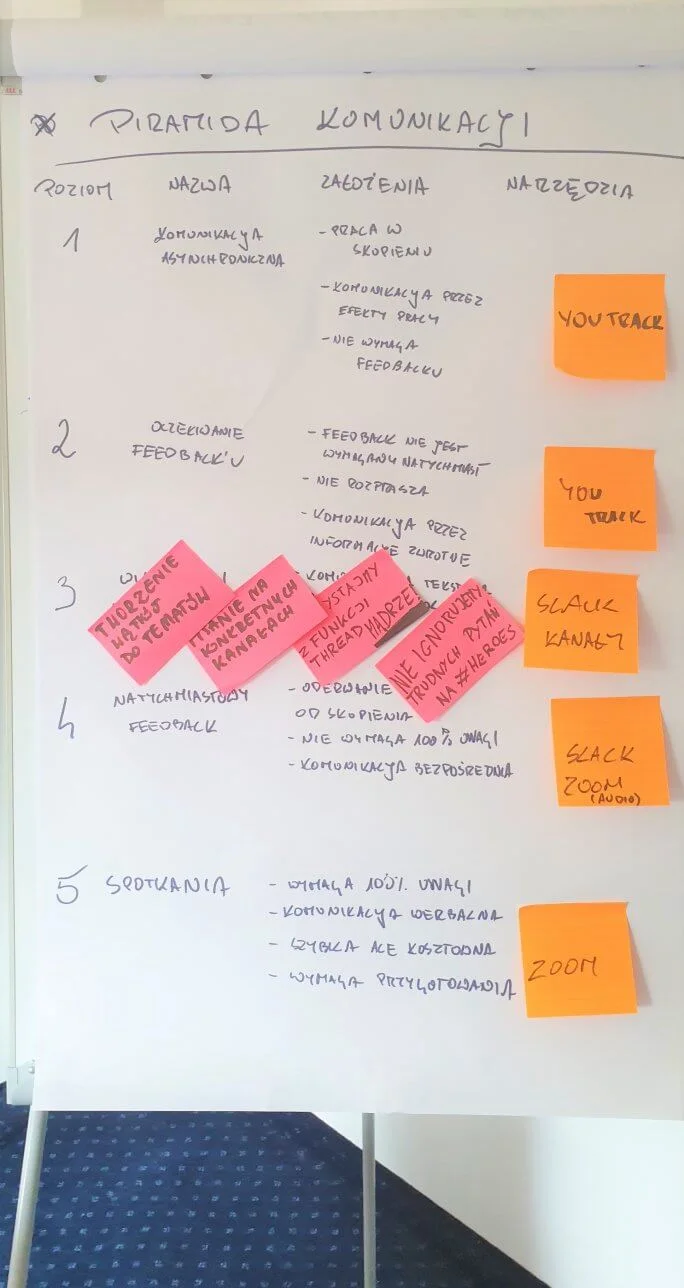 PIRAMIDA KOMUNIKACYJ
POZIOM NAZWA ZAŁOŻENIA NARZĘDZIA
1
KOMUNIKACYA
ASYNCHRONICZNA
- PRACA W
SKUPIENIU
- KOMUNIKACYA PRZEZ
EFEKTY PRACY
- NIE WYMAGA
FEEDBACKU
YOUTRACK
2
OCZEKIWANIE
FEEDBACK'U
- FEEDBACK NIE JEST
WYMAGANY NATYCHMIAST
- NIE ROZPRASZA
- KOMUNIKACJA PRZEZ
INFORMACJE ZWROTNE
YOU
TRACK
3
TWORZENIE
WĄTKÓW
DO TEMATÓW
NA
KONKRETNYCH
KANAŁACH
Z FUNKCJI
THREAD MĄDRZE!
NIE IGNORUJEMY
TRUDNYCH PYTAŃ
NA #HEROES
SLACK
KANAŁY
4
NATYCHMIASTOWY
FEEDBACK
- ODERWANIE
OD SKUPIENIA
- NIE WYMAGA 100% UWAGI
- KOMUNIKACJA BEZPOŚREDNIA
SLACK
ZOOM
(AUDIO)
5 SPOTKANIA
- WYMAGA 100% UWAGI
- KOMUNIKACJA WERBALNA
- SZYBKA ALE KOSZTOWNA
- WYMAGA PRZYGOTOWANIA
ZOOM